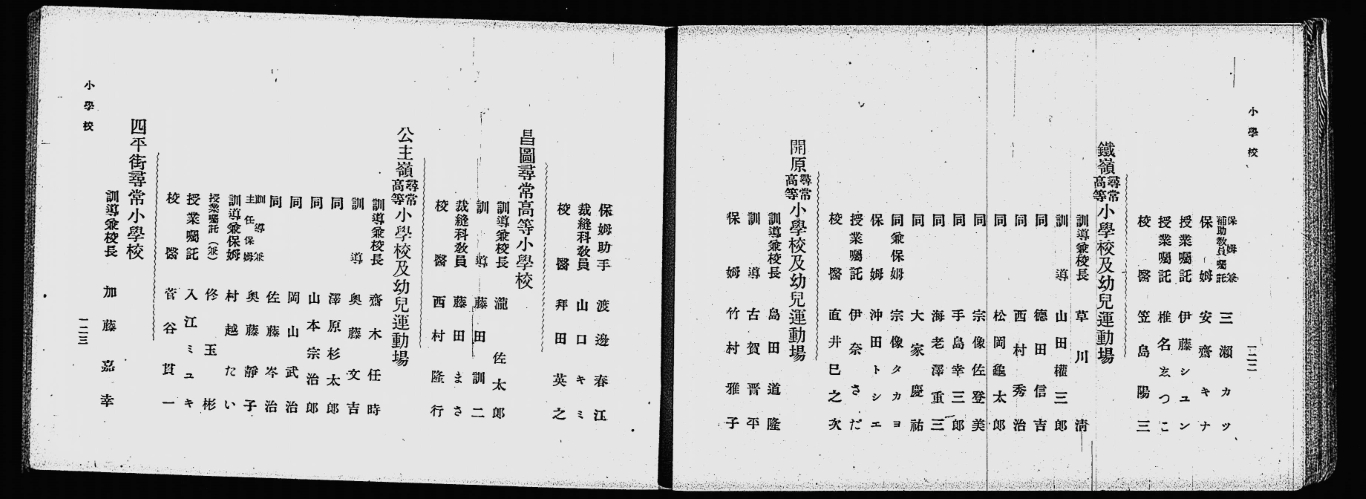 小學校
一二二
保姆兼補助敎員囑託 三瀨カツ
保姆 安齋キナ
授業囑託 伊藤シュン
授業囑託 椎名ゑつこ
校醫 笠島陽三
鐵嶺尋常高等小學校及幼兒運動場
訓導兼校長 草川淸
訓導 山田權三郞
同 德田信吉
同 西村秀治
同 松岡龜太郞
同 宗像佐登美
同 手島幸三郞
同 海老澤重三
同 大家慶祐
同兼保姆 宗像タカヨ
保姆 沖田トシエ
授業囑託 伊奈さだ
校醫 直井巳之次
開原尋常高等小學校及幼兒運動場
訓導兼校長 島田道隆
訓導 古賀晋平
保姆 竹村雅子
保姆助手 渡邊春江
裁縫科敎員 山口キミ
校醫 拜田英之
昌圖尋常高等小學校
訓導兼校長 瀧佐太郞
訓導 藤田訓二
裁縫科敎員 藤田まさ
校醫 西村隆行
公主嶺尋常高等小學校及幼兒運動場
訓導兼校長 齋木任時
訓導 奧藤文吉
同 澤原杉太郞
同 山本宗治郞
同 岡山武治
同 佐藤岑治
訓導兼主任保姆 奧藤靜子
訓導兼保姆 村越たい
授業囑託(兼) 佟玉彬
授業囑託 入江ミユキ
校醫 菅谷貫一
四平街尋常小學校
訓導兼校長 加藤嘉幸
小學校
一二三